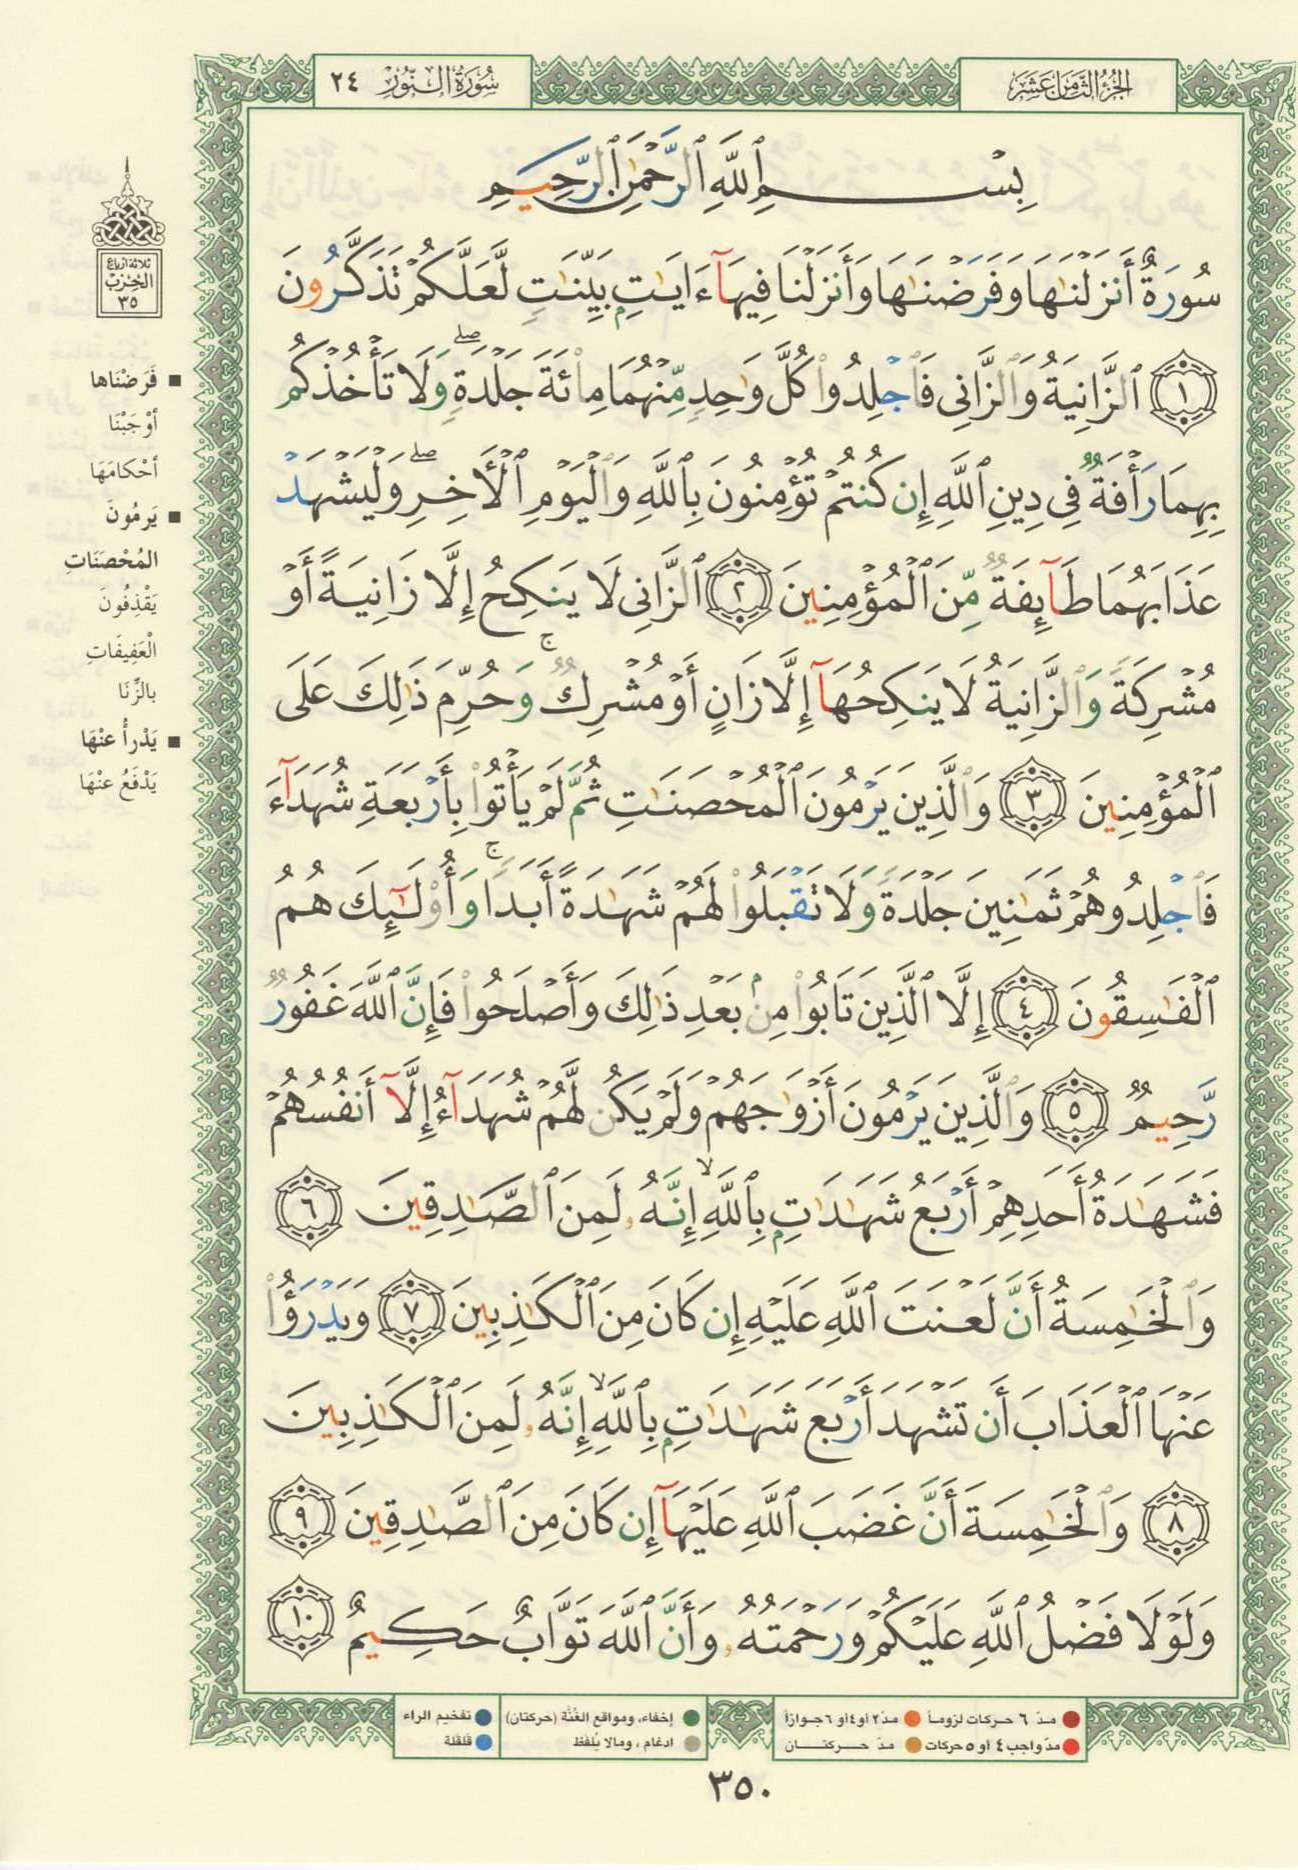 الجزء الثامن عشر
سورة النور ٢٤
بِسْمِ ٱللَّهِ ٱلرَّحْمَٰنِ ٱلرَّحِيمِ
سُورَةٌ أَنزَلْنَٰهَا وَفَرَضْنَٰهَا وَأَنزَلْنَا فِيهَآ ءَايَٰتٍۭ بَيِّنَٰتٍ لَّعَلَّكُمْ تَذَكَّرُونَ
١ ٱلزَّانِيَةُ وَٱلزَّانِى فَٱجْلِدُوا۟ كُلَّ وَٰحِدٍ مِّنْهُمَا مِا۟ئَةَ جَلْدَةٍ ۖ وَلَا تَأْخُذْكُم
بِهِمَا رَأْفَةٌ فِى دِينِ ٱللَّهِ إِن كُنتُمْ تُؤْمِنُونَ بِٱللَّهِ وَٱلْيَوْمِ ٱلْأَخِرِ ۖ وَلْيَشْهَدْ
عَذَابَهُمَا طَآئِفَةٌ مِّنَ ٱلْمُؤْمِنِينَ ٢ ٱلزَّانِى لَا يَنكِحُ إِلَّا زَانِيَةً أَوْ
مُشْرِكَةً وَٱلزَّانِيَةُ لَا يَنكِحُهَآ إِلَّا زَانٍ أَوْ مُشْرِكٌ ۚ وَحُرِّمَ ذَٰلِكَ عَلَى
ٱلْمُؤْمِنِينَ ٣ وَٱلَّذِينَ يَرْمُونَ ٱلْمُحْصَنَٰتِ ثُمَّ لَمْ يَأْتُوا۟ بِأَرْبَعَةِ شُهَدَآءَ
فَٱجْلِدُوهُمْ ثَمَٰنِينَ جَلْدَةً وَلَا تَقْبَلُوا۟ لَهُمْ شَهَٰدَةً أَبَدًا ۚ وَأُو۟لَٰٓئِكَ هُمُ
ٱلْفَٰسِقُونَ ٤ إِلَّا ٱلَّذِينَ تَابُوا۟ مِنۢ بَعْدِ ذَٰلِكَ وَأَصْلَحُوا۟ فَإِنَّ ٱللَّهَ غَفُورٌ
رَّحِيمٌ ٥ وَٱلَّذِينَ يَرْمُونَ أَزْوَٰجَهُمْ وَلَمْ يَكُن لَّهُمْ شُهَدَآءُ إِلَّآ أَنفُسُهُمْ
فَشَهَٰدَةُ أَحَدِهِمْ أَرْبَعُ شَهَٰدَٰتٍۭ بِٱللَّهِ ۙ إِنَّهُۥ لَمِنَ ٱلصَّٰدِقِينَ ٦
وَٱلْخَٰمِسَةُ أَنَّ لَعْنَتَ ٱللَّهِ عَلَيْهِ إِن كَانَ مِنَ ٱلْكَٰذِبِينَ ٧ وَيَدْرَؤُا۟
عَنْهَا ٱلْعَذَابَ أَن تَشْهَدَ أَرْبَعَ شَهَٰدَٰتٍۭ بِٱللَّهِ ۙ إِنَّهُۥ لَمِنَ ٱلْكَٰذِبِينَ
٨ وَٱلْخَٰمِسَةَ أَنَّ غَضَبَ ٱللَّهِ عَلَيْهَآ إِن كَانَ مِنَ ٱلصَّٰدِقِينَ ٩
وَلَوْلَا فَضْلُ ٱللَّهِ عَلَيْكُمْ وَرَحْمَتُهُۥ وَأَنَّ ٱللَّهَ تَوَّابٌ حَكِيمٌ ١٠
ثلاثة أرباع
الحزب
٣٥
■ فَرَضْنَاها
أوْجَبْنَا
أحْكامَهَا
■ يَرمُونَ
المُحْصَنَاتِ
يَقْذِفُونَ
الْعَفِيفَاتِ
بالزِّنَا
■ يَدْرأُ عنْهَا
يَدْفَعُ عنْهَا
مدّ ٦ حركات لزوماً
مدّ ٢ أو ٤ أو ٦ جوازاً
إخفاء، ومواقع الغُنَّة (حركتان)
تفخيم الراء
مدّ واجب ٤ أو ٥ حركات
مدّ حركتان
ادغام، ومالا يُلفظ
قلقلة
٣٥٠